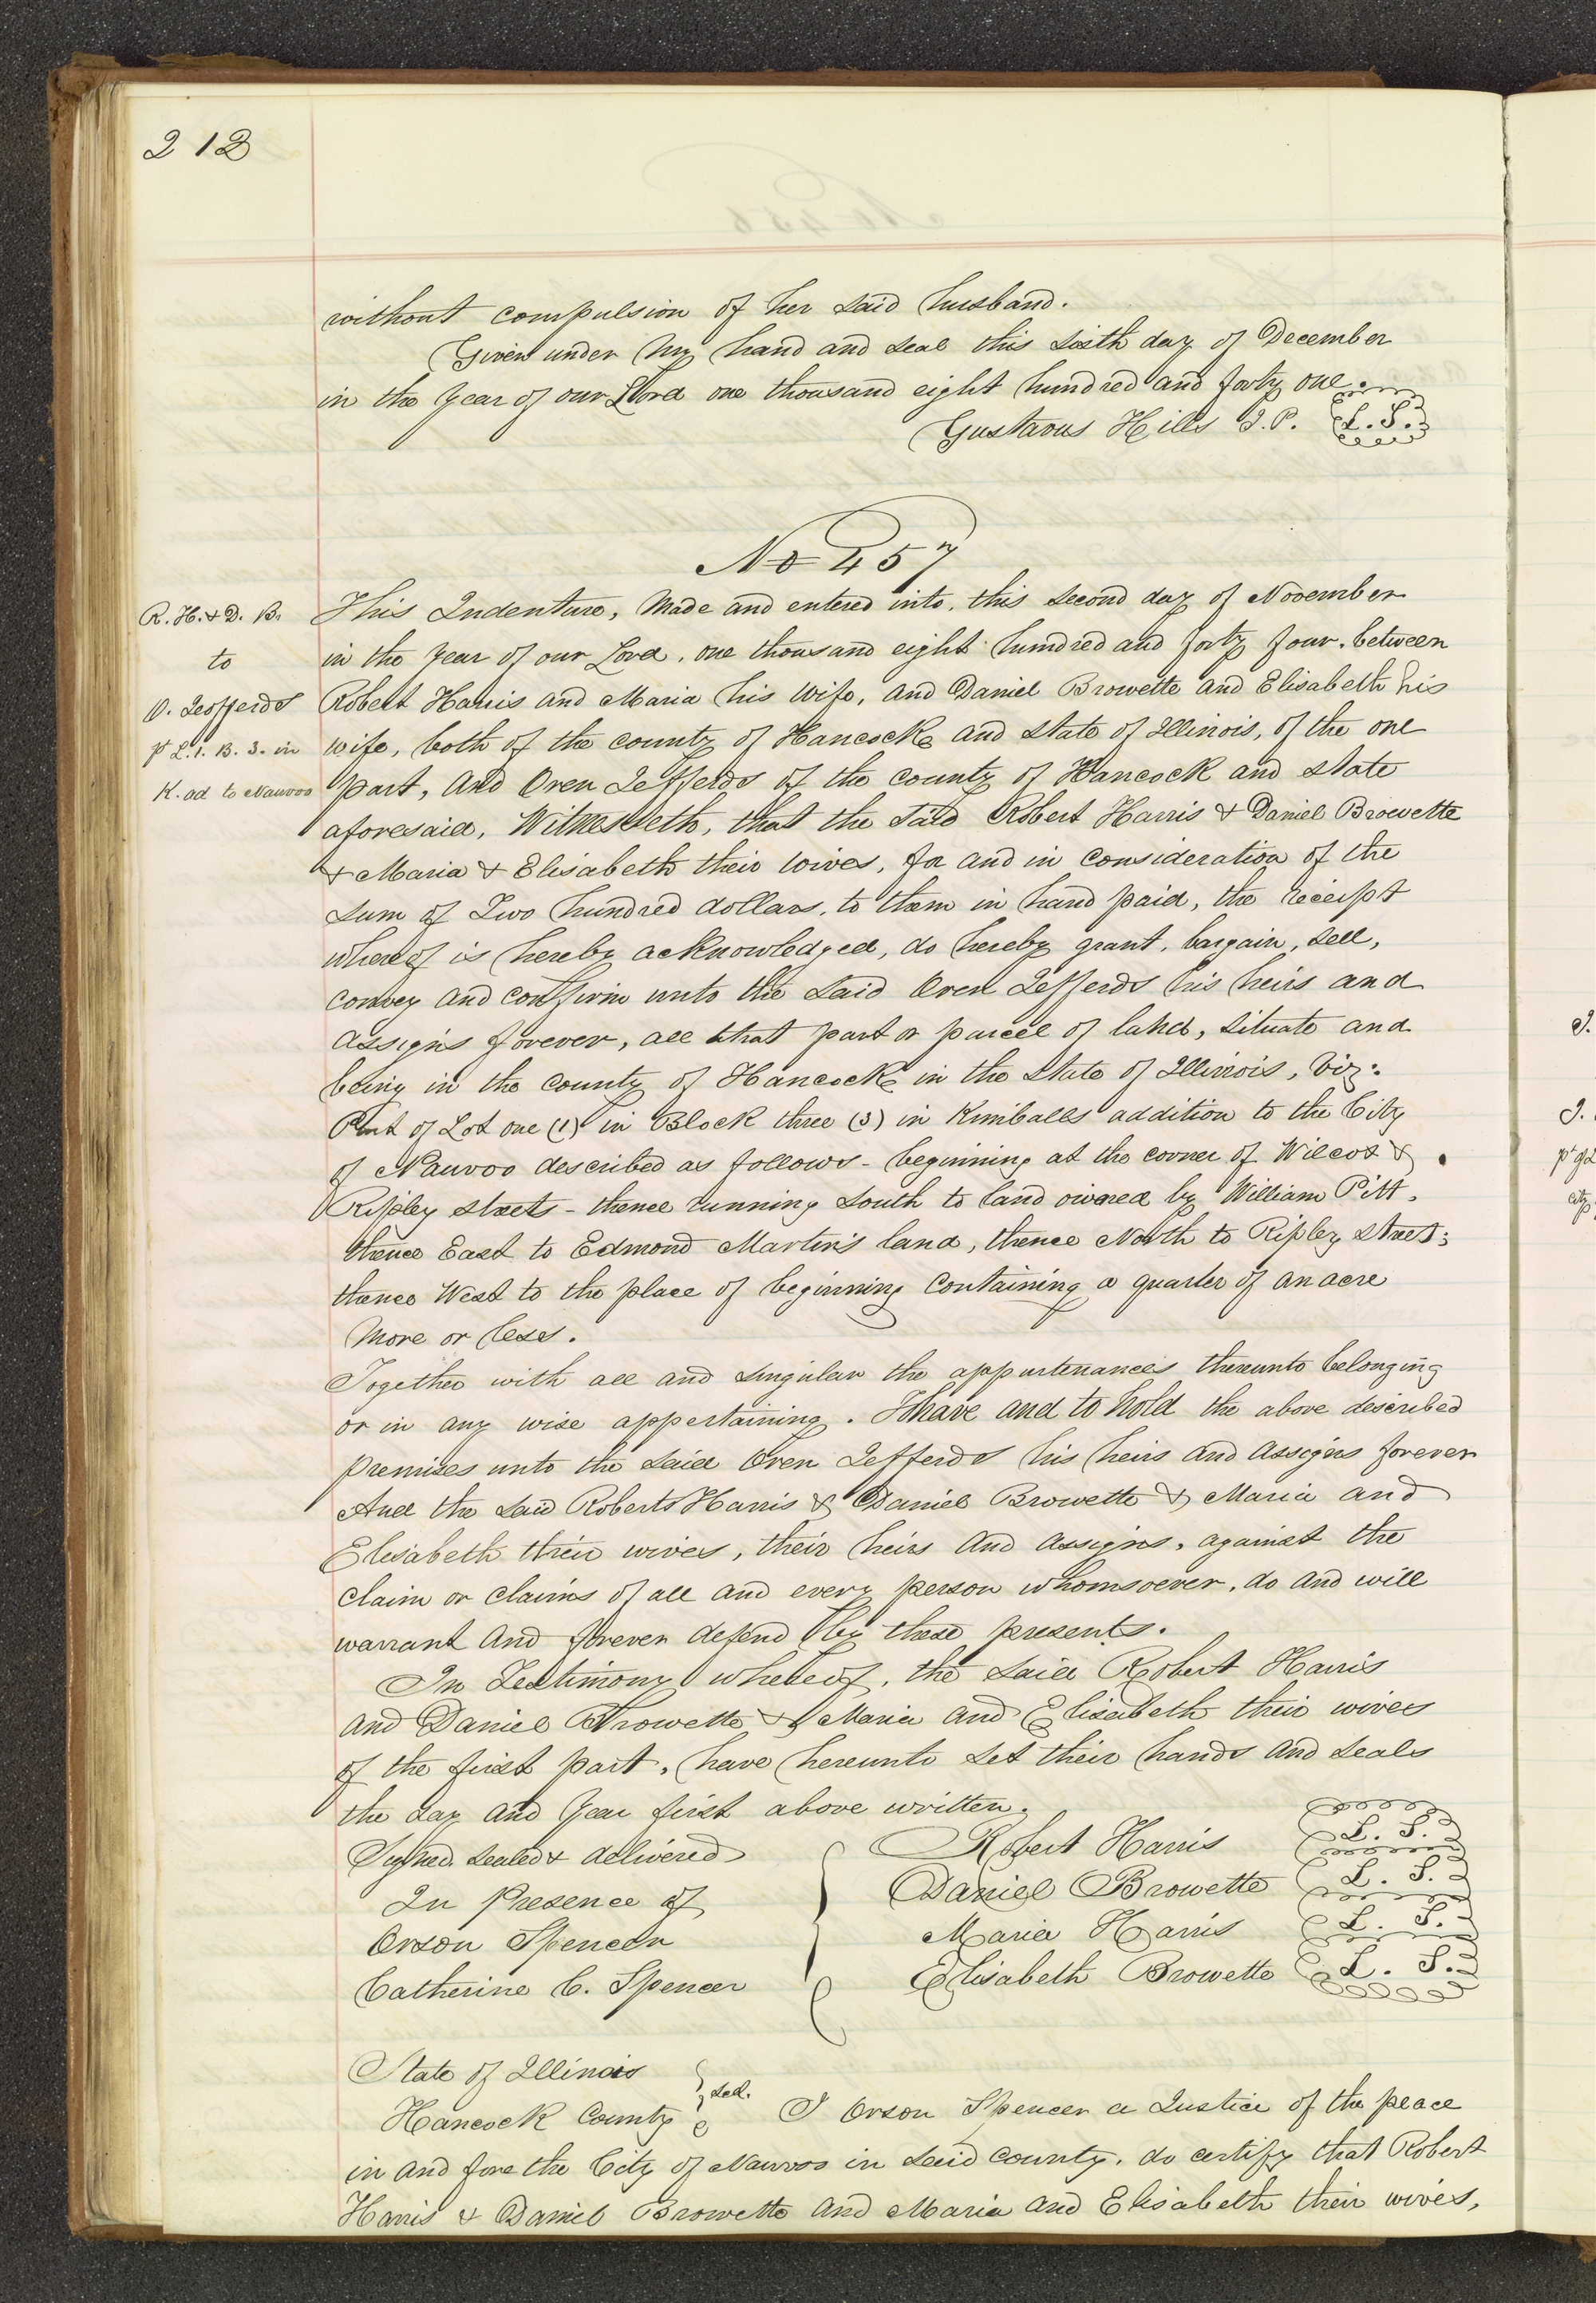 212
without compulsion of her said husband.
Given under my hand and seal this sixth day of December
in the year of our Lord one thousand eight hundred and forty one.
Gustavus Hills J.P. L.S.
No 457
R. H. & D. B.
to
O. Jefferds
pt L. 1. B. 3. in
K. ad to Nauvoo
This Indenture, Made and entered into, this second day of November
in the year of our Lord, one thousand eight hundred and forty four, between
Robert Harris and Maria his wife, and Daniel Browette and Elisabeth his
wife, both of the county of Hancock and state of Illinois, of the one
part, And Oren Jefferds of the county of Hancock and state
aforesaid, Witnesseth, that the said Robert Harris & Daniel Browette
& Maria & Elisabeth their wives, for and in consideration of the
sum of Two hundred dollars, to them in hand paid, the receipt
whereof is hereby acknowledged, do hereby grant, bargain, sell,
convey and confirm unto the said Oren Jefferds his heirs and
assigns forever, all that part or parcel of land, situate and
being in the county of Hancock in the State of Illinois, viz:
Part of Lot one (1) in Block three (3) in Kimballs addition to the City
of Nauvoo described as follows - beginning at the corner of Wilcox &
Ripley streets - thence running South to land owned by William Pitt,
thence East to Edmond Martin's land, thence North to Ripley street;
thence West to the place of beginning Containing a quarter of an acre
More or less.
Together with all and singular the appurtenances thereunto belonging
or in any wise appertaining. To have and to hold the above described
premises unto the said Oren Jefferds his heirs and assigns forever
And the said Roberts Harris & Daniel Browette & Maria and
Elisabeth their wives, their heirs and assigns, against the
claim or claims of all and every person whomsoever, do and will
warrant and forever defend by these presents.
In Testimony whereof, the said Robert Harris
and Daniel Browette & Maria and Elisabeth their wives
of the first part, have hereunto set their hands and seals
the day and year first above written.
Signed sealed & delivered
In Presence of
Orson Spencer
Catherine C. Spencer
Robert Harris L. S.
Daniel Browette L. S.
Maria Harris L. S.
Elisabeth Browette L. S.
State of Illinois
Hancock County
I Orson Spencer a Justice of the peace
in and fore the City of Nauvoo in said county, do certify that Robert
Harris & Daniel Browette and Maria and Elisabeth their wives,